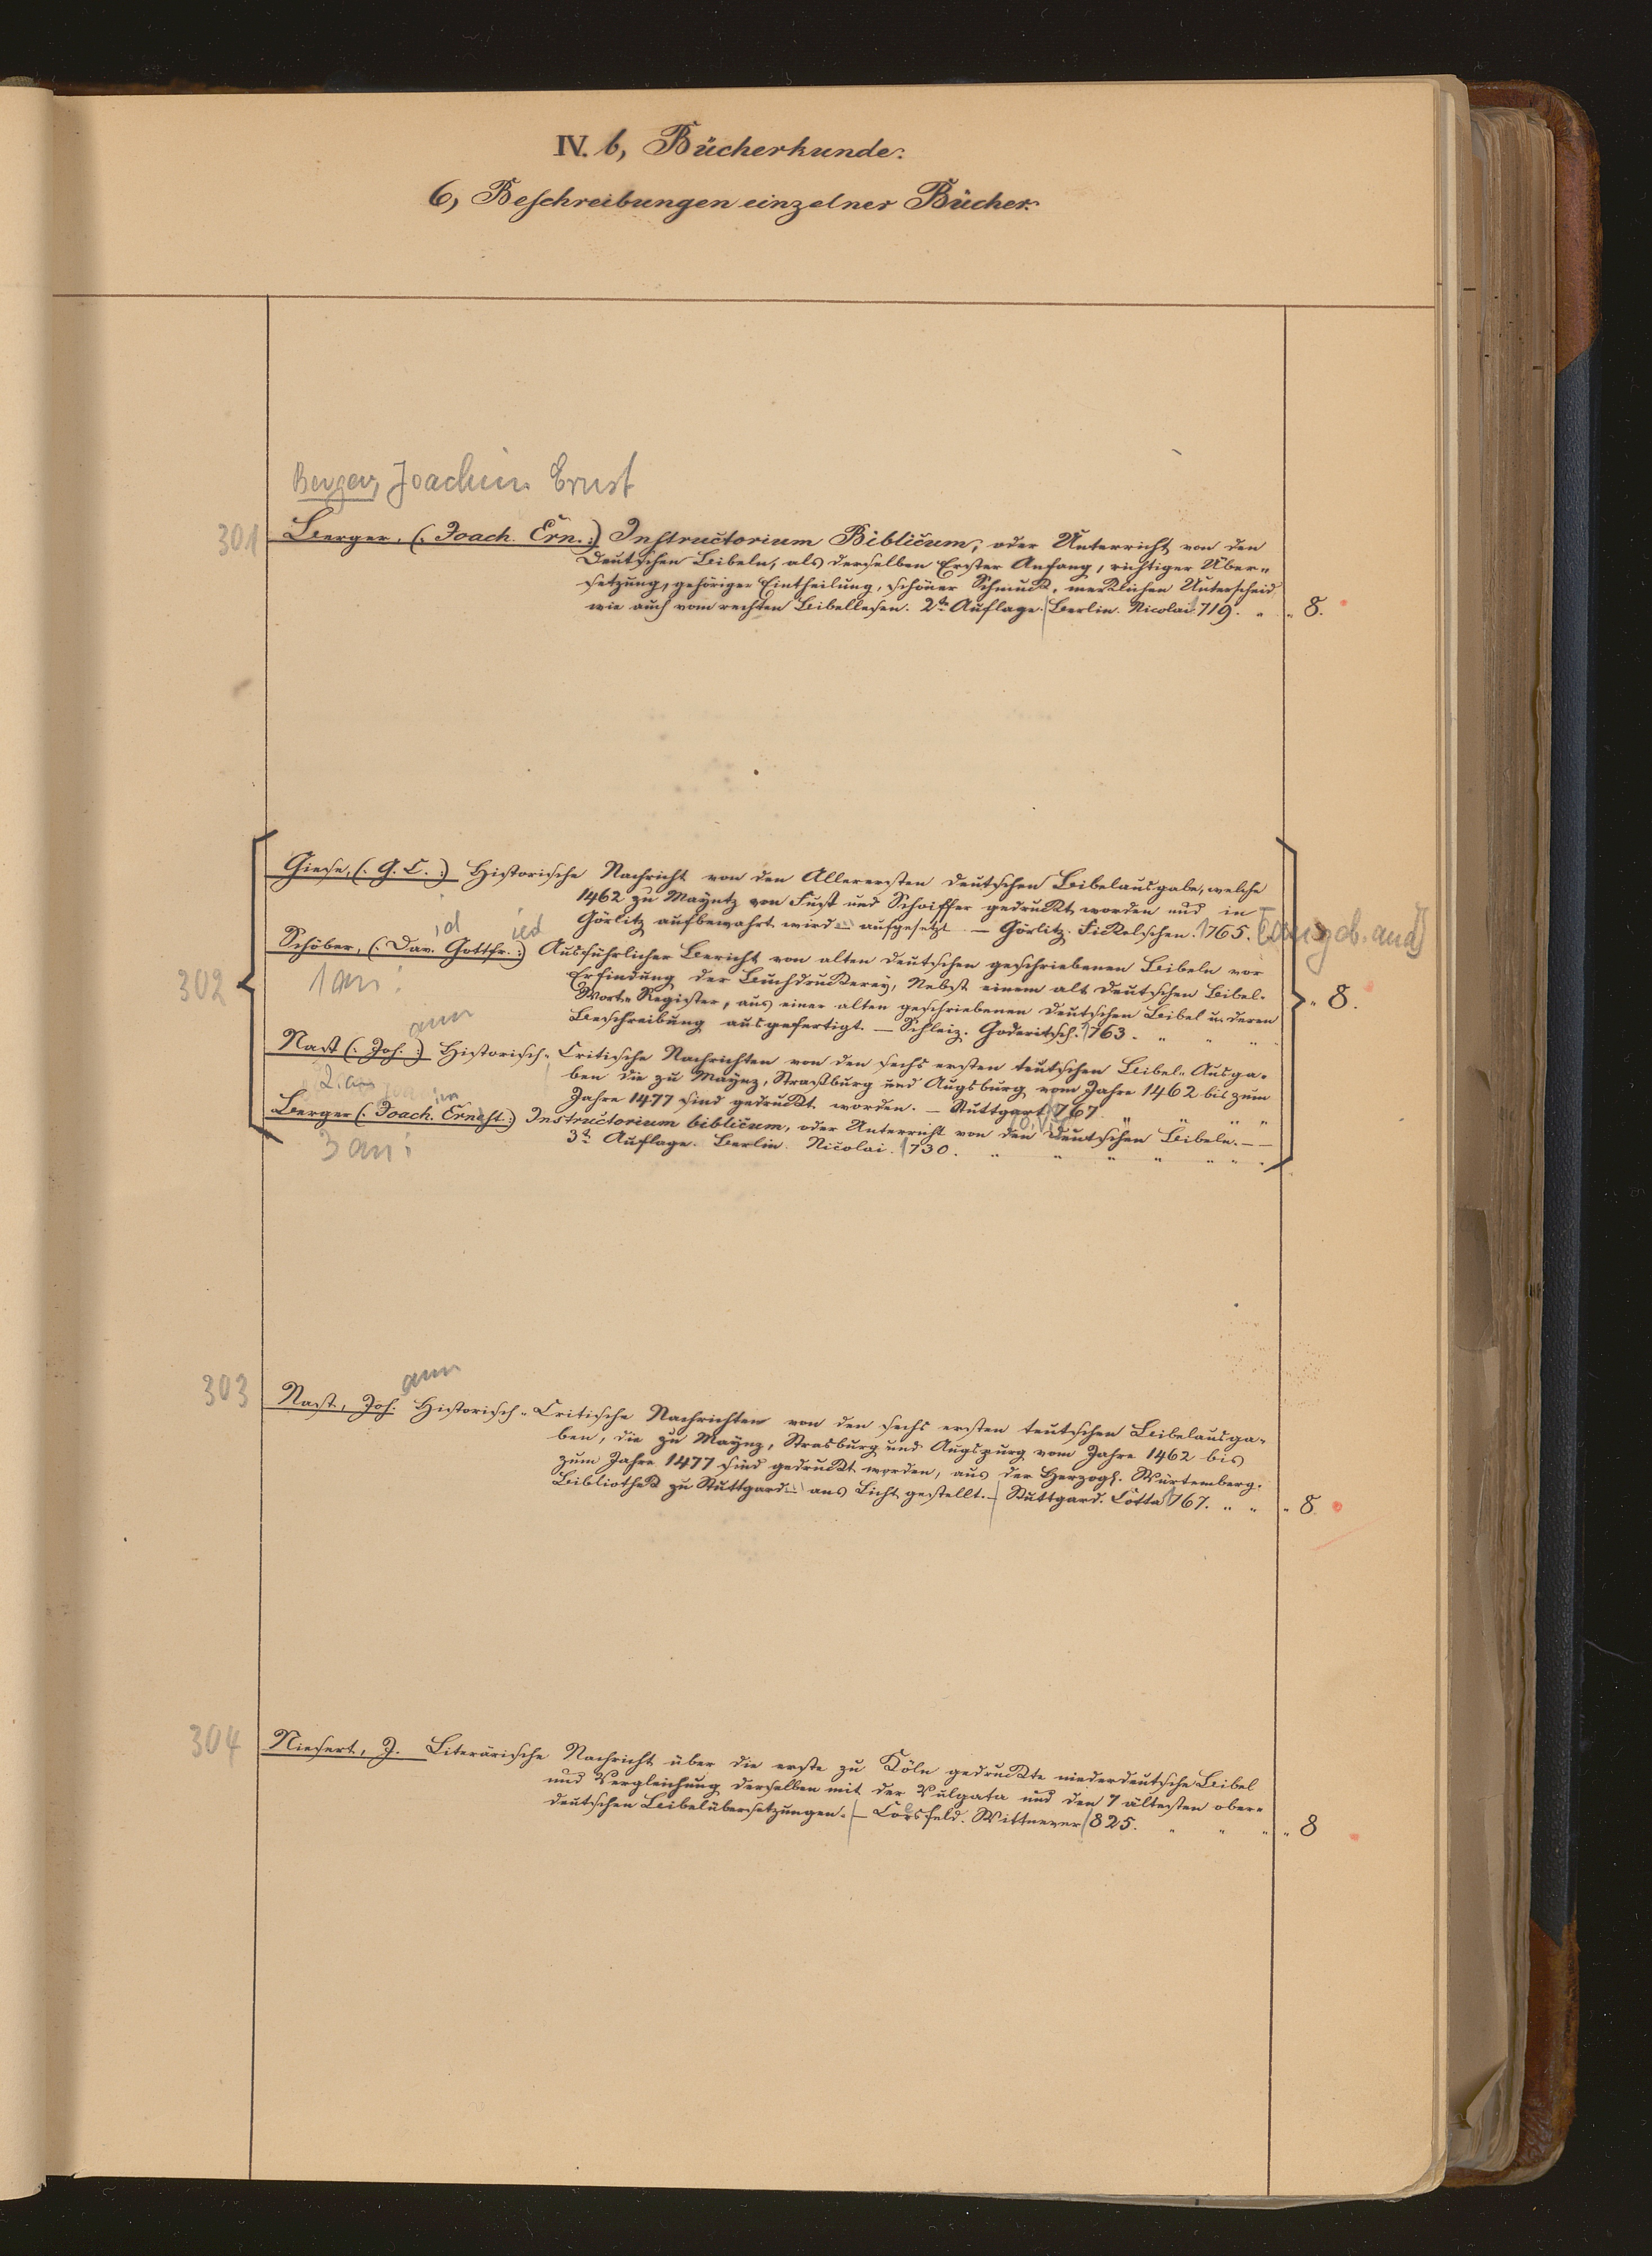 IV. b, Bücherkunde.
6, Beschreibungen einzelner Bücher.
Berger, Joachim Ernst
301 Berger, (: Joach. Ern. :) Instructorium Biblicum, oder Unterricht von den
Deutschen Bibeln, als derselben Erster Anfang, richtiger Über-
setzung, gehöriger Eintheilung, schöner Schmuck, merklichen Unterscheid
wie auch vom rechten Bibellesen. 2te Auflage. Berlin. Nicolai 1719. " " 8.
Giese, (: G. C. :) Historische Nachricht von den Allerersten deutschen Bibelausgabe, welche
1462 zu Mayntz von Fust und Schoiffer gedruckt worden und in
Görlitz aufbewahrt wird aufgesetzt — Görlitz. Fickelschen. 1765.
id ied
Schöber, (: Dav. Gottfr. :) Ausführlicher Bericht von alten deutschen geschriebenen Bibeln vor
302 1 an: Erfindung der Buchdruckerey, Nebst einem alt deutschen Bibel- " 8.
Wort= Register, aus einer alten geschriebenen deutschen Bibel u. deren
Beschreibung ausgefertigt. — Schleiz. Goderitsch. 1763. " " "
ann
Nast (: Joh. :) Historisch= Critische Nachrichten von den sechs ersten teutschen Bibel= Ausga-
2. an ben die zu Maynz, Straßburg und Augsburg vom Jahre 1462 bis zum
Jahre 1477 sind gedruckt worden. — Stuttgart 1767. " " " "
im
Berger (: Joach. Ernest :) Instructorium biblicum, oder Unterricht von den deutschen Bibeln. — —
3 an: 3te Auflage. Berlin. Nicolai. 1730. " " " " " "
ann
303 Nast., Joh. Historisch= Critische Nachrichten von den sechs ersten teutschen Bibelausga-
ben, die zu Maynz, Strasburg und Augspurg vom Jahre 1462 bis
zum Jahre 1477 sind gedruckt worden, aus der Herzogl. Würtemberg.
Bibliothek zu Stuttgard ans Licht gestellt. — Stuttgard. Cotta 1767. " " " 8
304 Niesert, J. Literärische Nachricht über die erste zu Köln gedruckte niederdeutsche Bibel
und Vergleichung derselben mit der Vulgata und den 7 ältesten ober-
deutschen Bibelübersetzungen. — Coesfeld. Wittnever 1825. " " " " 8